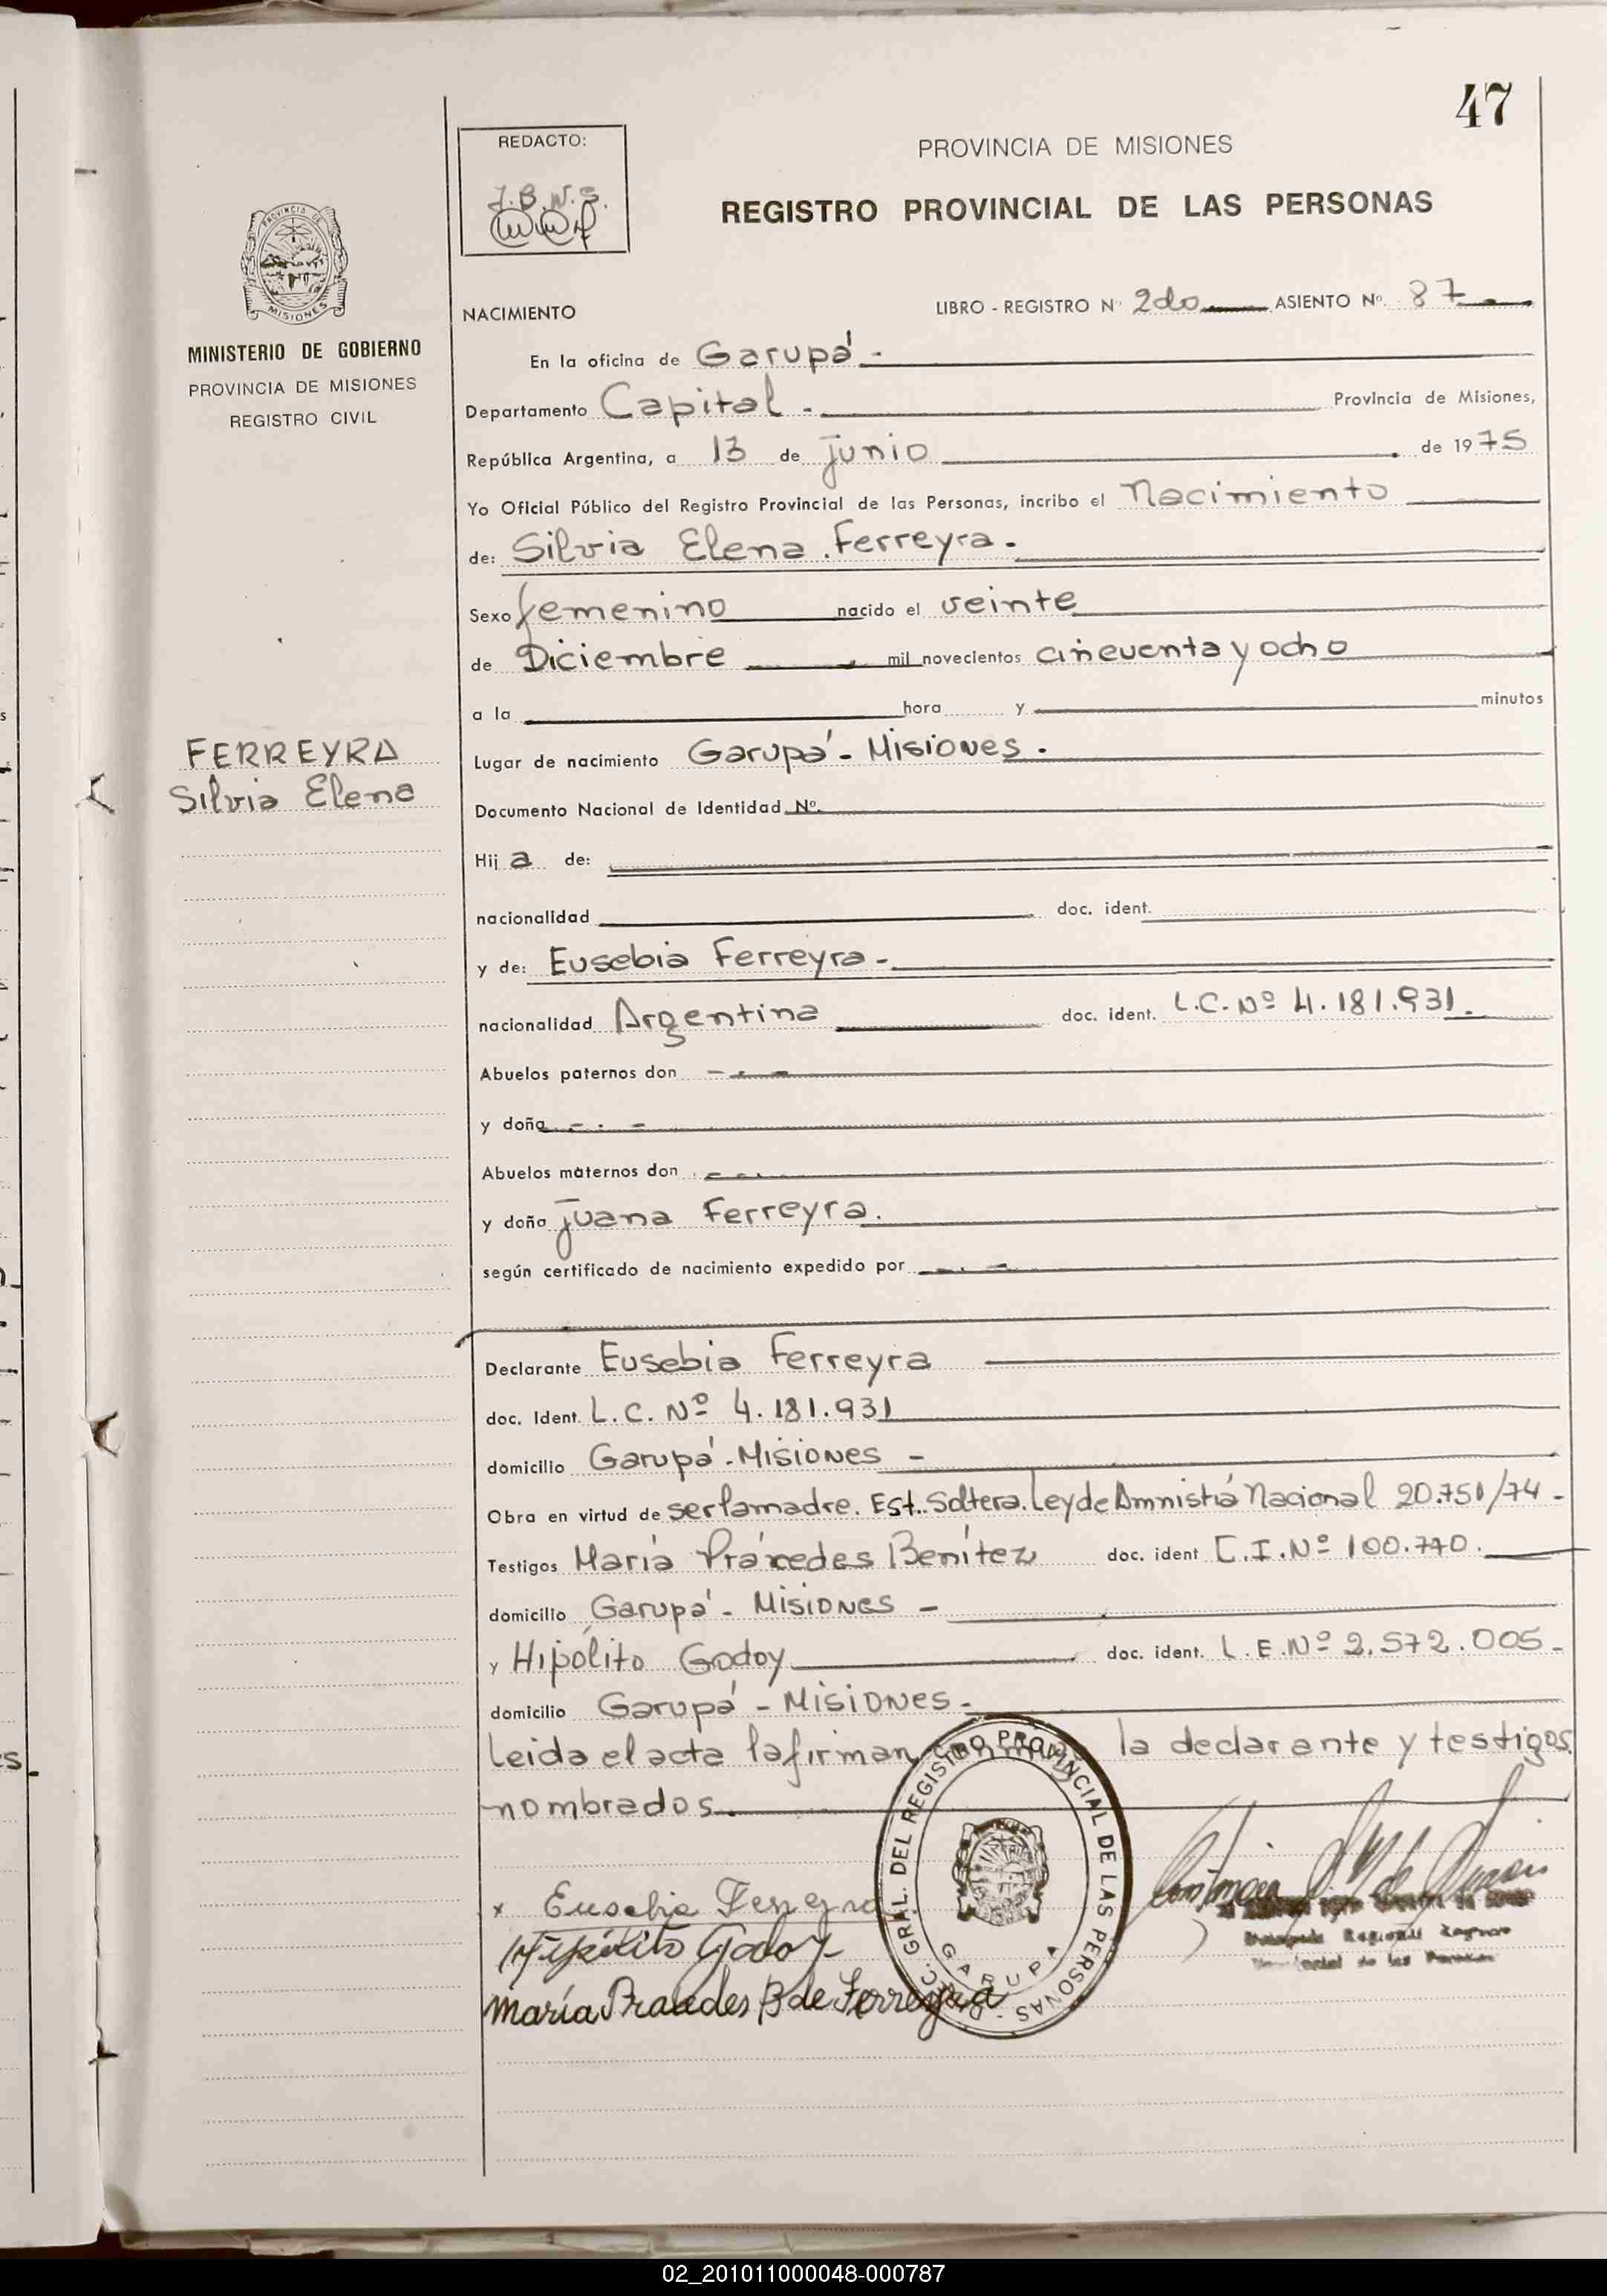 47
REDACTO:
J.B.W.S.
PROVINCIA DE MISIONES
REGISTRO PROVINCIAL DE LAS PERSONAS
PROVINCIA DE
MISIONES
MINISTERIO DE GOBIERNO
PROVINCIA DE MISIONES
REGISTRO CIVIL
NACIMIENTO
LIBRO - REGISTRO Nº 2do ASIENTO Nº 87
En la oficina de Garupá -
Departamento Capital - Provincia de Misiones,
República Argentina, a 13 de junio de 1975
Yo Oficial Público del Registro Provincial de las Personas, incribo el Nacimiento
de: Silvia Elena Ferreyra.
Sexo femenino nacido el veinte
de Diciembre mil novecientos cincuenta y ocho
a la hora y minutos
FERREYRA
Silvia Elena
Lugar de nacimiento Garupá - Misiones.
Documento Nacional de Identidad Nº
Hij a de:
nacionalidad doc. ident.
y de: Eusebia Ferreyra -
nacionalidad Argentina doc. ident. L.C. Nº 4.181.931.
Abuelos paternos don
y doña
Abuelos maternos don
y doña Juana Ferreyra.
según certificado de nacimiento expedido por
Declarante Eusebia Ferreyra
doc. Ident. L.C. Nº 4.181.931
domicilio Garupá - Misiones -
Obra en virtud de ser la madre. Est. Soltera. Ley de Amnistiá Nacional 20.751/74 -
Testigos María Práxedes Benítez doc. ident C.I. Nº 100.740.
domicilio Garupá - Misiones -
y Hipólito Godoy doc. ident. L.E. Nº 2.572.005 -
domicilio Garupá - Misiones -
Leida el acta la firman la declarante y testigos
nombrados.
GRAL. DEL REGISTRO PROVINCIAL DE LAS PERSONAS
GARUPA
x Eusebia Ferreyra
Hipólito Godoy
María Praxedes B de Ferreyra
02_201011000048-000787